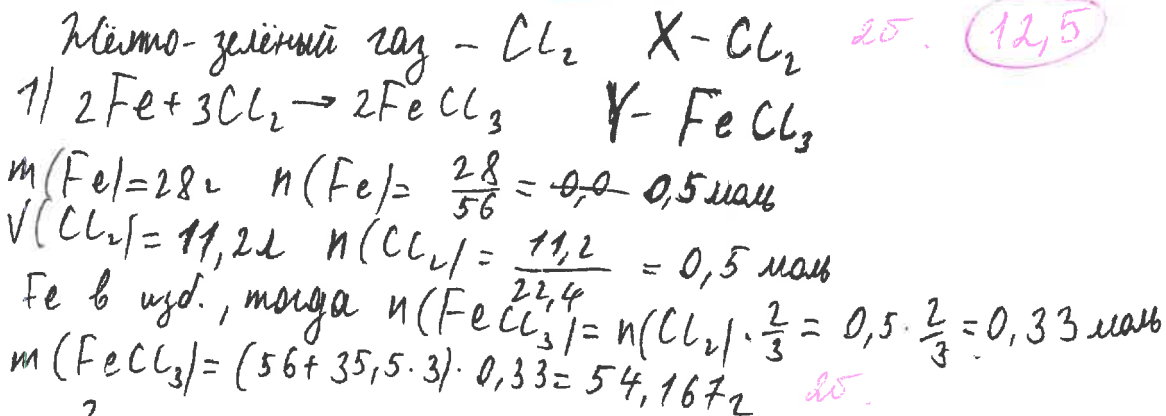 Жёлто-зелёный газ - Cl₂ X - Cl₂ 2б. 12,5
1) 2Fe + 3Cl₂ → 2FeCl₃ Y - FeCl₃
m(Fe) = 28г n(Fe) = 28/56 = 0,0 0,5 моль
V(Cl₂) = 11,2л n(Cl₂) = 11,2/22,4 = 0,5 моль
Fe в изб., тогда n(FeCl₃) = n(Cl₂) · 2/3 = 0,5 · 2/3 = 0,33 моль
m(FeCl₃) = (56 + 35,5 · 3) · 0,33 = 54,167г 2б.